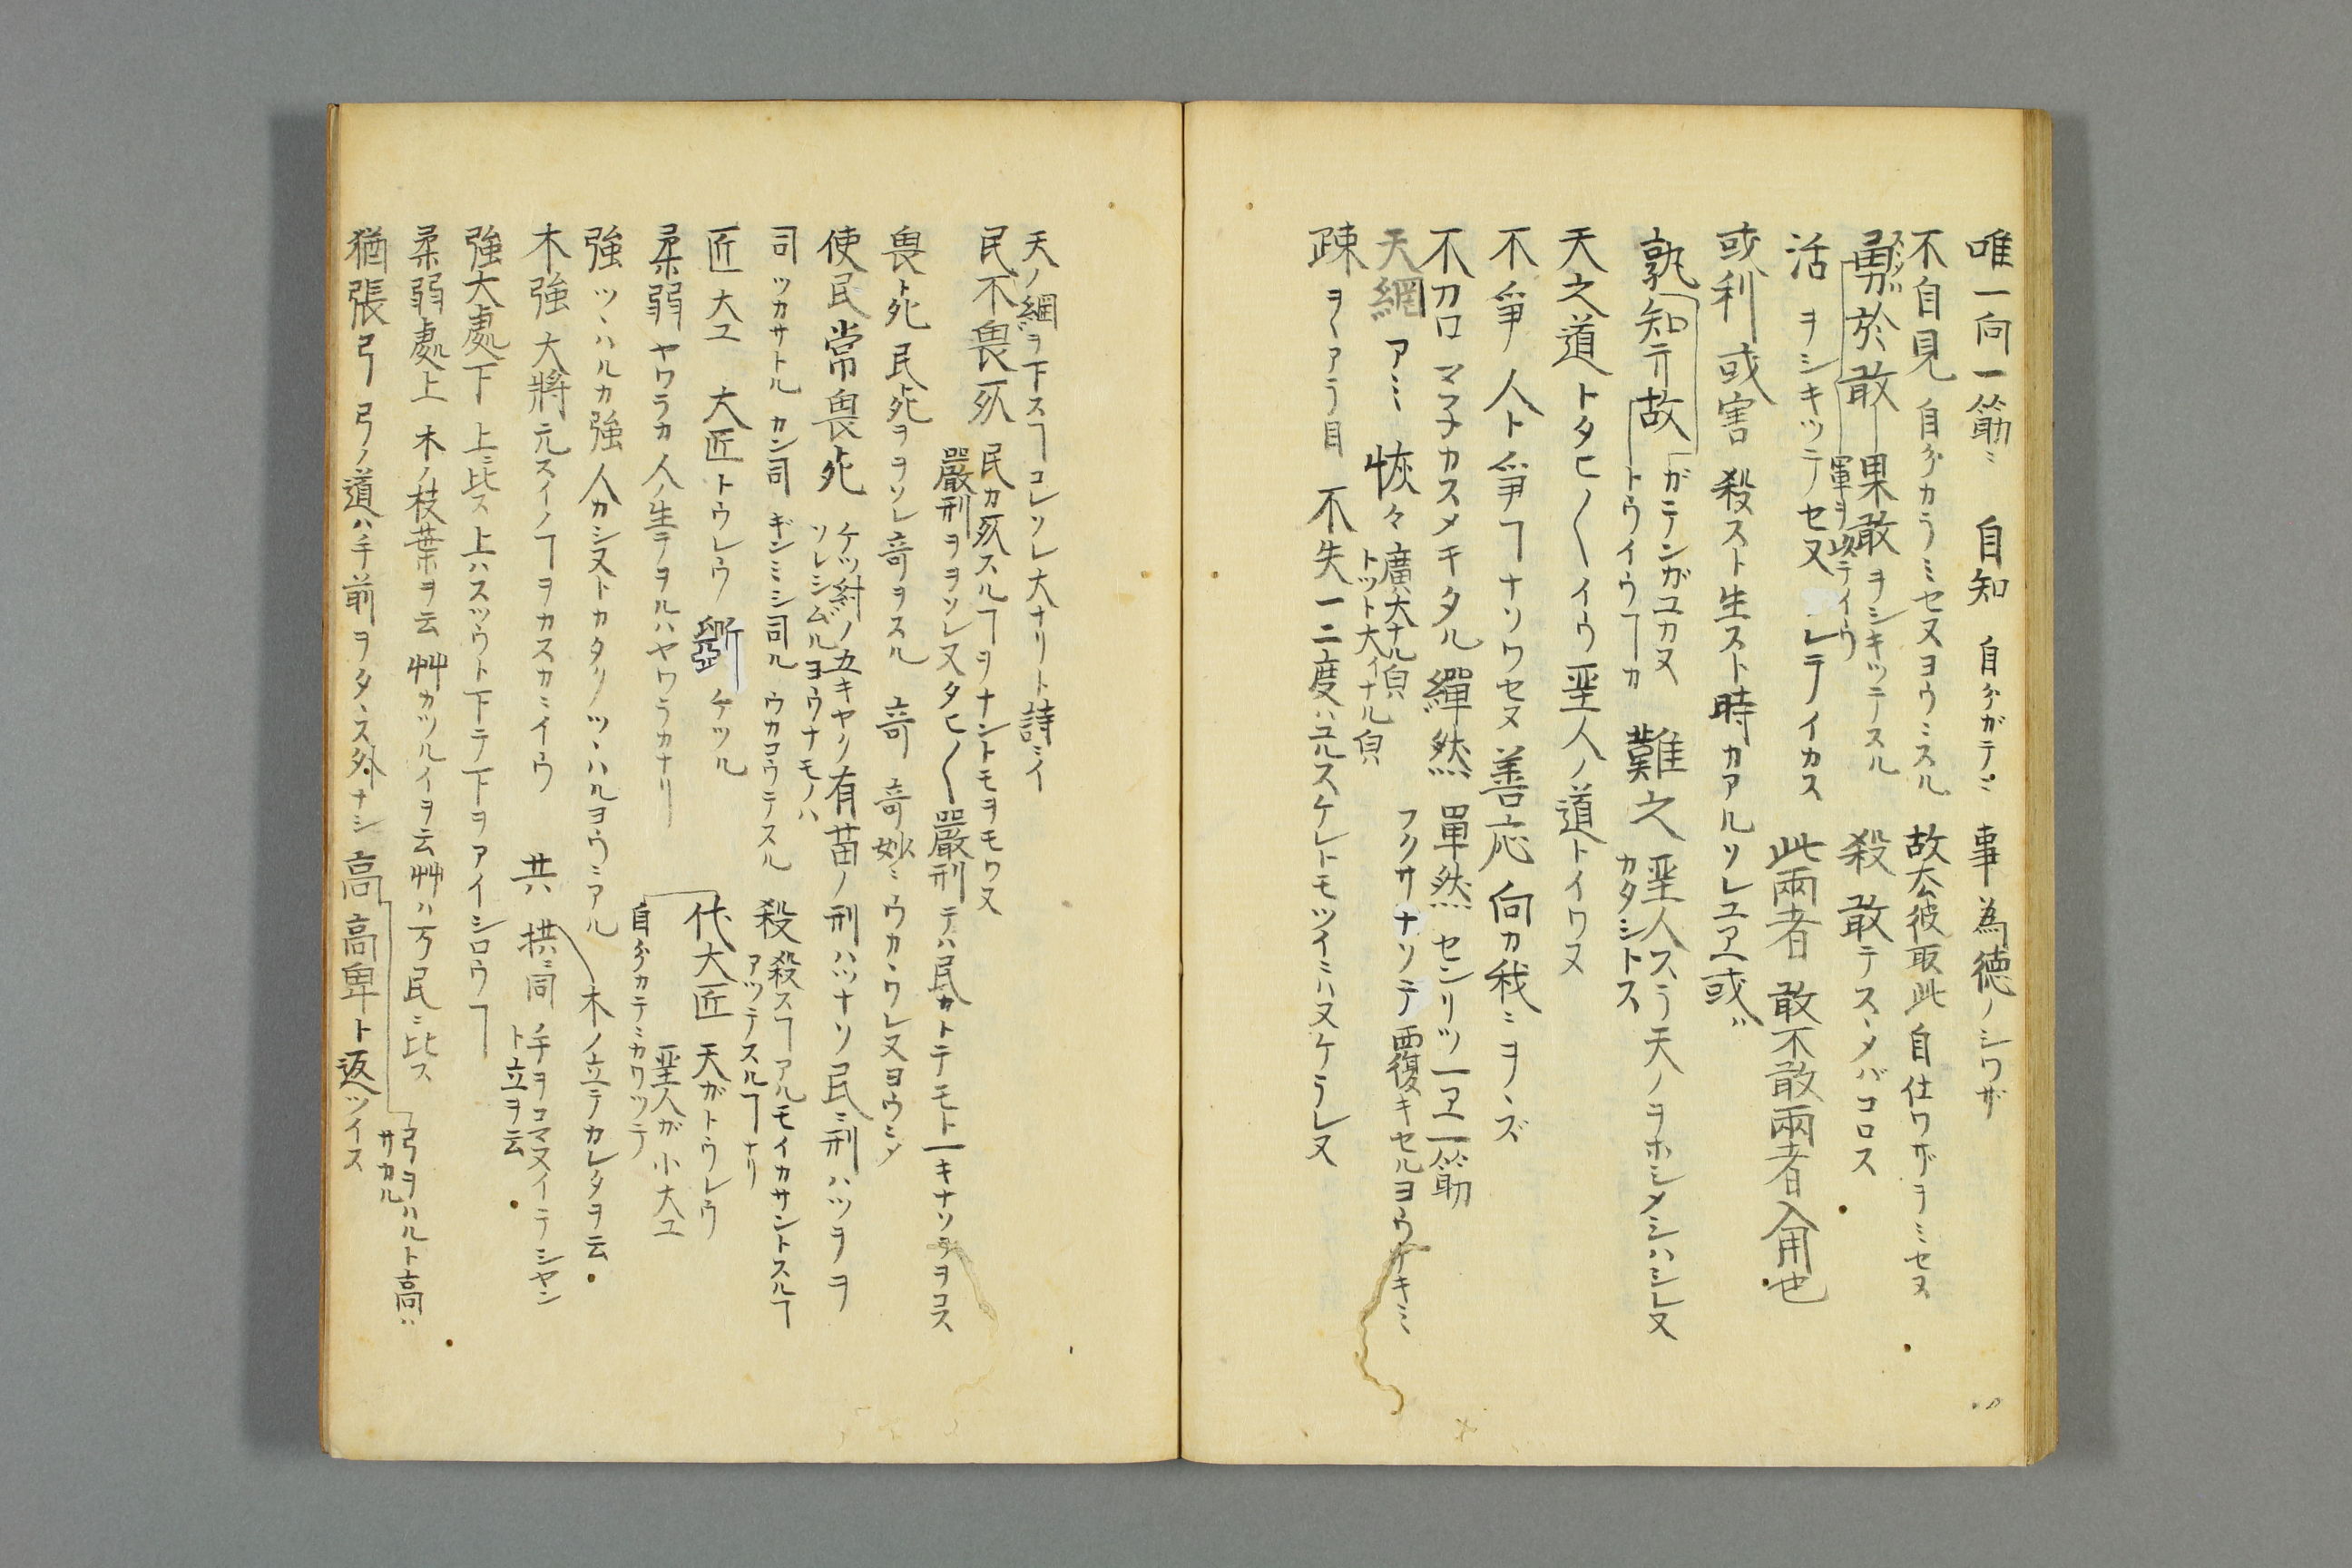 唯一向一筋ニ 自知 自分ガテニ 事為徳ノシワザ
不自見 自分カラミセヌヨウニスル 故去彼取此 自仕ワザヲミセヌ
勇於敢 果敢ヲシキツテスル 殺 敢テスヽメバコロス
活 ヲシキツテセヌ レテイカス 此兩者 敢不敢兩者也
或利或害 殺スト生スト時カアルソレユヱ或〃
孰知テ故 ガテンガユカヌ
トウイウヿカ 難之 聖人スラ天ノヲホシメシハシレヌ
カタシトス
天之道 トタヒ〱イウ聖人ノ道トイワヌ
不爭 人ト爭ヿナソワセヌ 善応 向カ我ニヲヽズ
不召 マ子カスメキタル 繟然 單然 センリツ一ヱ一筋
天網 アミ 恢々 廣大ナル㒵
トツト大イナル㒵 フクサナソテ覆キセルヨウ
疎 ヲヽアラ目 不失 一二度ハユルスケレトモツイニハヌケラレヌ
天ノ網ヲ下スヿコレソレ大ナリト詩ニイ
民不畏死 民カ死スルヿヲナントモヲモワヌ
嚴刑ヲヲソレヌタヒ〱嚴刑テハ民カトテモト
畏ト死 民死ヲヲソレ竒ヲスル 竒 竒妙ニウカヽワレヌヨウニ
使民常畏死 ケツ紂ノ五キヤリ有苗ノ刑ハツナソ民ニ刑ハツヲヲ
ソレシムルヨウナモノハ
司 ツカサトル カン司 ギンミシ司ル ウカコウテスル 殺 殺スヿアルモイカサントスルヿ
アツテスルヿナリ
匠 大工 大匠トウレウ 斲 ケツル 代大匠 天ガトウレウ
聖人が小大工
自分カテニカワツテ
柔弱 ヤワラカ 人ノ生テヲルハヤワラカナリ
強 ツヽハルカ強 人カシヌトカタクツヽハルヨウニアル 木ノ立テカレタヲ云
木強 大將元スイノヿヲカスカニイウ 共 拱ニ同 手ヲコマヌイテシヤン
ト立ヲ云
強大處下 上ニ比ス 上ハスツウト下テ下ヲアイシロウヿ
柔弱處上 木ノ枝葉ヲ云 艸カツルイヲ云 艸ハ万民ニ比ス
弓ヲハルト高〃
サカル
猶張弓 弓ノ道ハ手前ヲタヽス外ナシ 高 高卑ト返ツイス